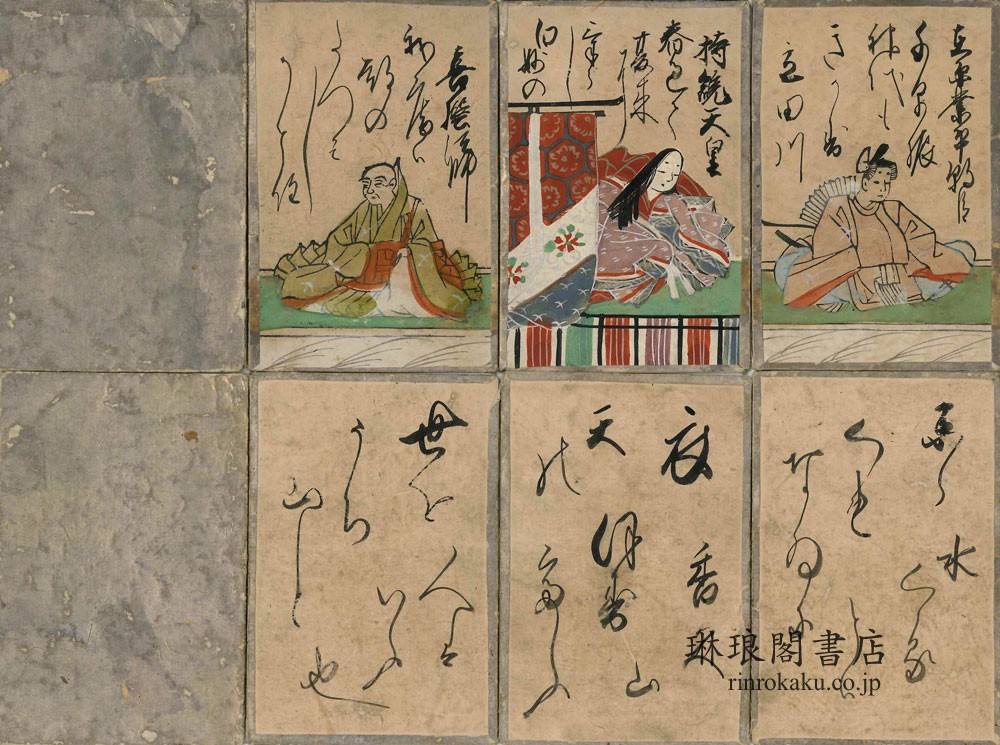 在原業平朝臣
千早振
神代も
きかす
立田川
持統天皇
春過て
夏来
にけらし
白妙の
喜撰法師
我庵は
都の
たつみ
しかそ住
から
くれ
なゐに
水くゝる
とは
衣
ほす
てふ
天の
香
山
世を
うち
山と
人は
いふ
也
琳琅閣書店
rinrokaku.co.jp